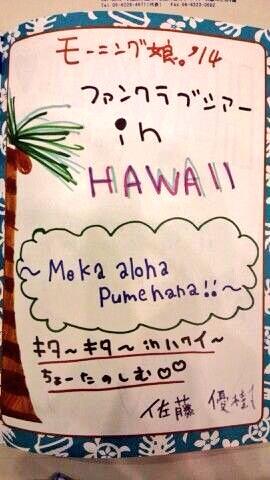 モーニング娘。'14
ファンクラブツアー
in
HAWAII
～Meka aloha
Pumehana!!～
キタ～キタ～inハワイ～
ちょーたのしむ♡♡
佐藤 優樹